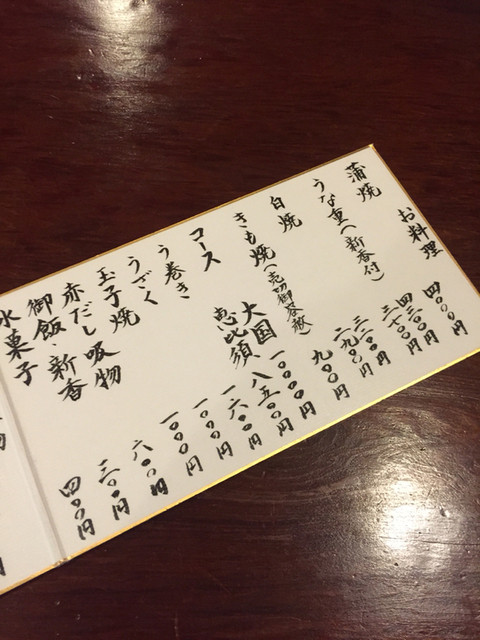 お料理
蒲焼
四〇〇〇円
うな重(新香付)
円
円
円
白焼
円
きも焼(売切御容赦)
九〇〇円
コース
大国 一〇〇〇〇円
恵比須 八五〇〇円
う巻き
一六〇〇円
うざく
一〇〇〇円
玉子焼
一〇〇〇円
吸物
六〇〇円
赤だし
三〇〇円
御飯・新香
四〇〇円
水菓子